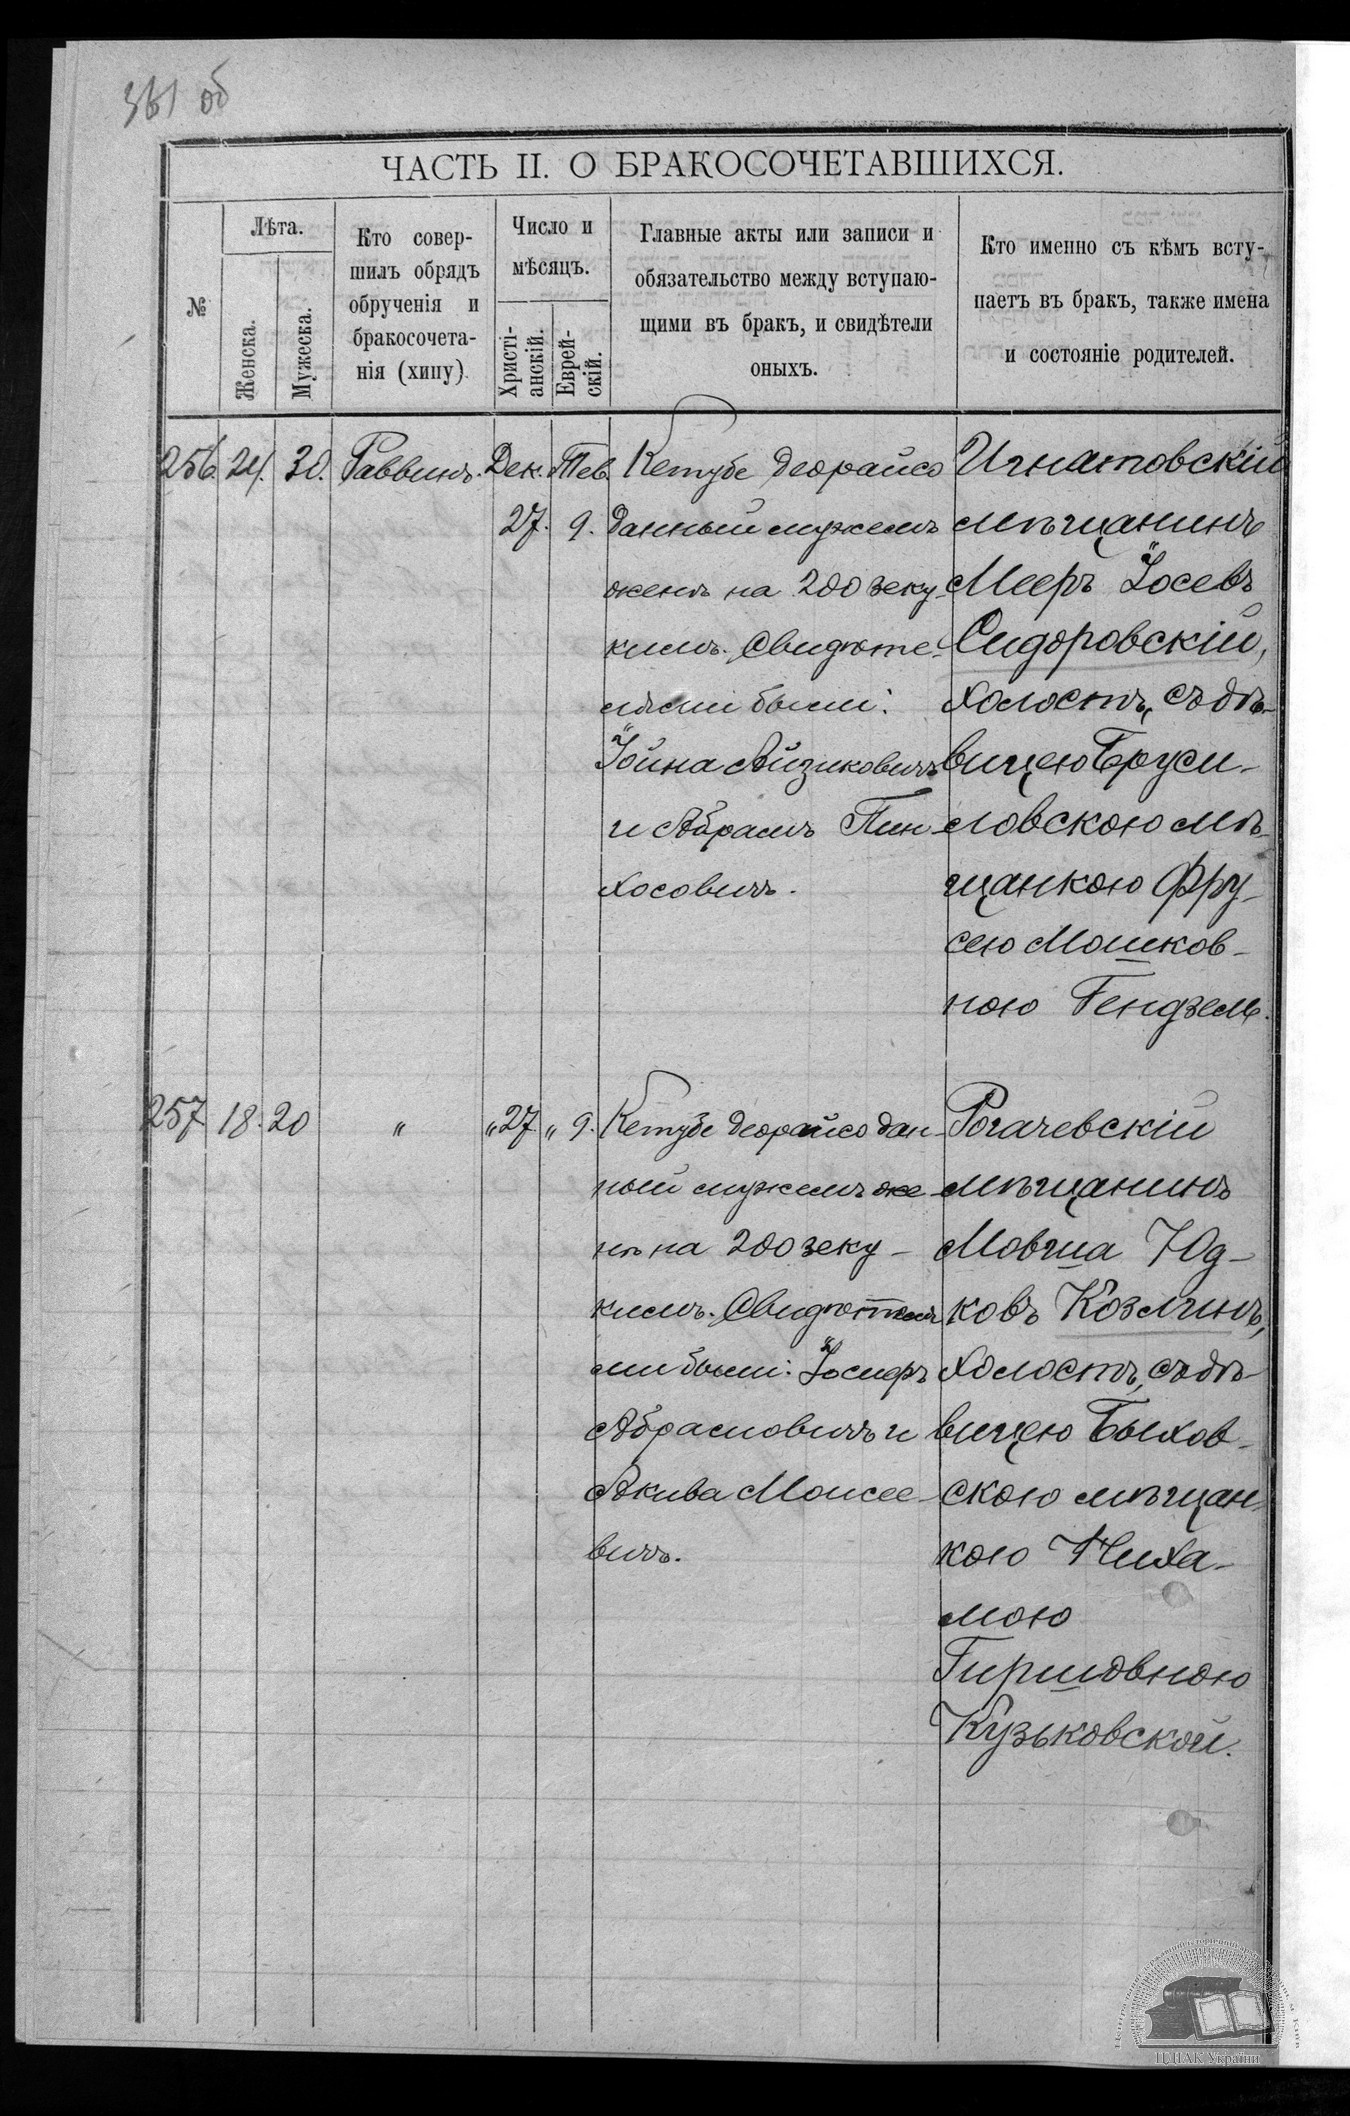 361 об
ЧАСТЬ II. О БРАКОСОЧЕТАВШИХСЯ.
№
Лѣта.
Женска.
Мужеска.
Кто совер-
шилъ обрядъ
обрученія и
бракосочета-
нія (хипу)
Число и
мѣсяцъ.
Христі-
анскій.
Еврей-
скій.
Главные акты или записи и
обязательство между вступаю-
щими въ бракъ, и свидѣтели
оныхъ.
Кто именно съ кѣмъ всту-
паетъ въ бракъ, также имена
и состояніе родителей.
256. 24. 30. Раввинъ. Дек. Тев.
27. 9.
Кетубе деорайсо
данный мужемъ
женѣ на 200 зеку-
кимъ. Свидѣте-
лями были:
Іойна Айзиковичъ
и Абрамъ Пин-
хосовичъ.
Игнатовскій
мѣщанинъ
Мееръ Іосевъ
Сидоровскій,
холостъ, съ дѣ-
вицею Бруси-
ловскою мѣ-
щанкою Фру-
сею Мошков-
ною Гендзель.
257 18. 20 " " 27 " 9.
Кетубе деорайсо дан-
ный мужемъ же-
нѣ на 200 зеку-
кимъ. Свидѣтеля
ми были: Іосифъ
Абрамовичъ и
Акива Моисее-
вичъ.
Рогачевскій
мѣщанинъ
Мовша Юд-
ковъ Козлинъ,
холостъ, съ дѣ-
вицею Быхов-
скою мѣщан-
кою Чиха-
мою
Гиршовною
Кузьковской.
ЦДІАК України